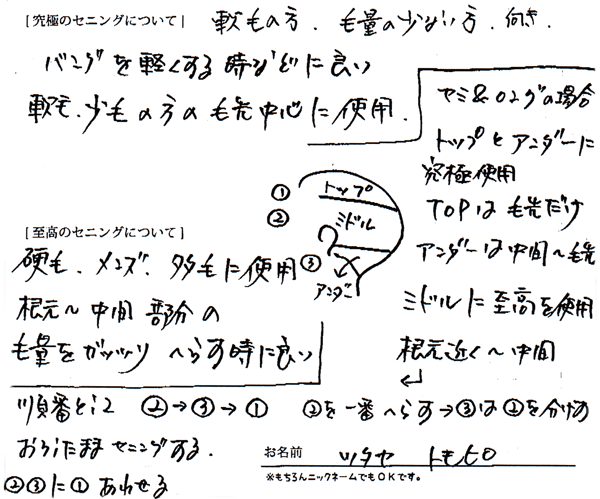 [究極のセニングについて] 軟毛の方、毛量の少ない方、向き、
バングを軽くする時などに良い
軟毛、少毛の方の毛先中心に使用、
セミ&ロングの場合
トップとアンダーに
究極使用
TOPは毛先だけ
アンダーは中間〜毛先
ミドルに至高を使用
根元近く〜中間
① トップ
② ミドル
③ アンダー
[至高のセニングについて]
硬毛、メンズ、多毛に使用
根元〜中間部分の
毛量をガッツリへらす時に良い
順番として ②→③→① ②を一番へらす→③は②を分けず
おろしたままセニングする、
②③に①あわせる
お名前 ツタヤ トモヒロ
※もちろんニックネームでもOKです。